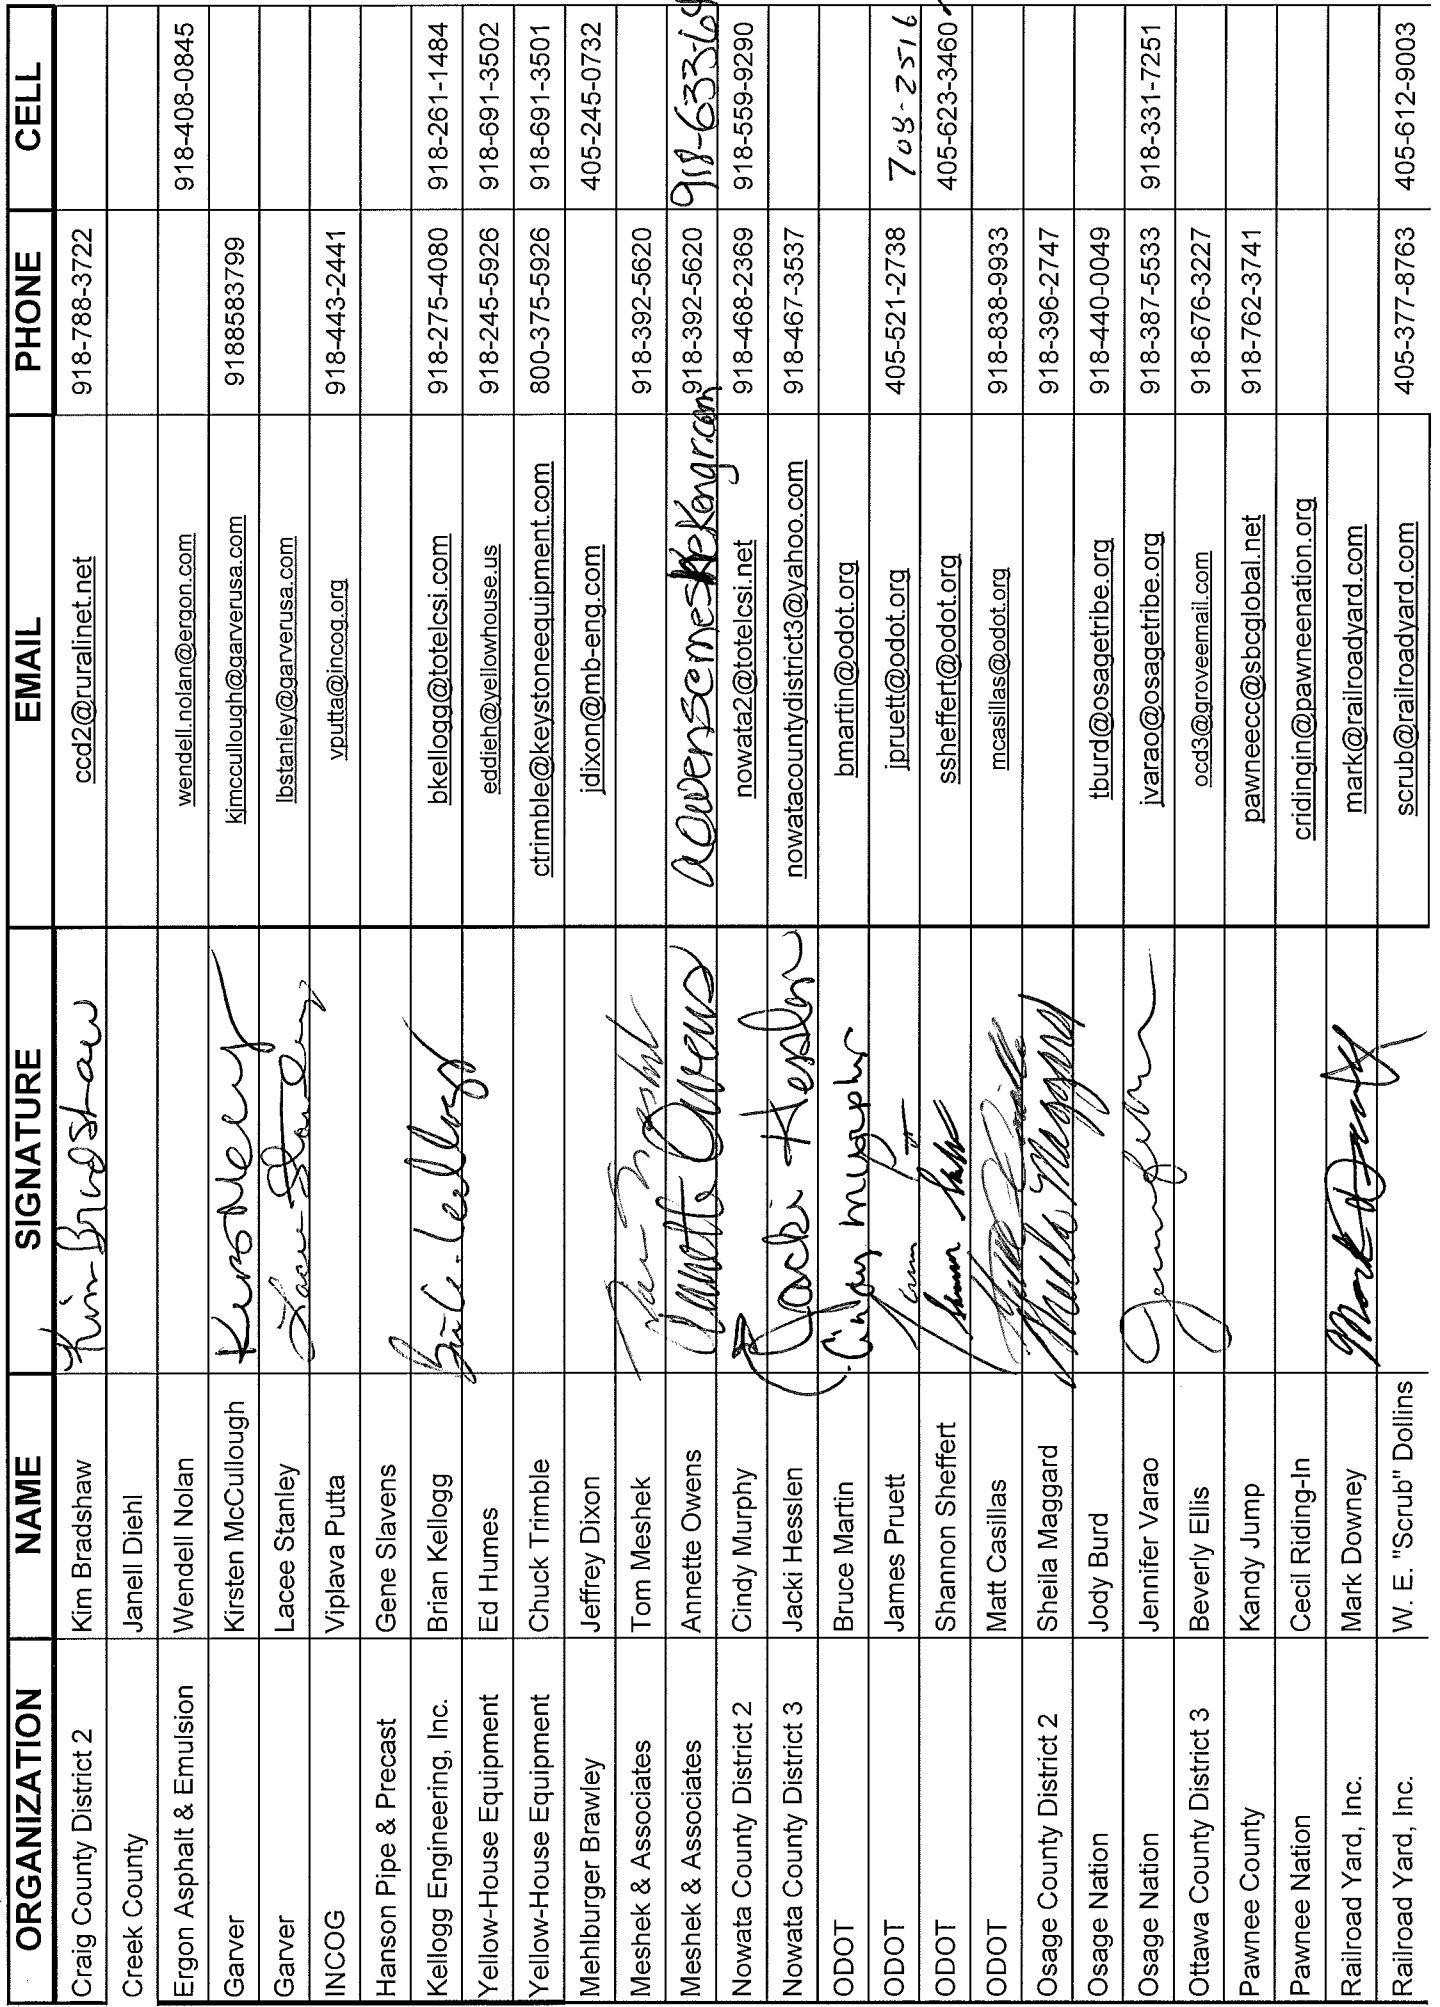 ORGANIZATION NAME SIGNATURE EMAIL PHONE CELL
Craig County District 2 Kim Bradshaw Kim Bradshaw ccd2@ruralinet.net 918-788-3722
Creek County Janell Diehl
Ergon Asphalt & Emulsion Wendell Nolan wendell.nolan@ergon.com 918-408-0845
Garver Kirsten McCullough kjmccullough@garverusa.com 9188583799
Garver Lacee Stanley Lacee Stanley lbstanley@garverusa.com
INCOG Viplava Putta vputta@incog.org 918-443-2441
Hanson Pipe & Precast Gene Slavens
Kellogg Engineering, Inc. Brian Kellogg Brian C. Kellogg bkellogg@totelcsi.com 918-275-4080 918-261-1484
Yellow-House Equipment Ed Humes eddieh@yellowhouse.us 918-245-5926 918-691-3502
Yellow-House Equipment Chuck Trimble ctrimble@keystoneequipment.com 800-375-5926 918-691-3501
Mehlburger Brawley Jeffrey Dixon jdixon@mb-eng.com 405-245-0732
Meshek & Associates Tom Meshek 918-392-5620
Meshek & Associates Annette Owens Annette Owens aowens@meshekengr.com 918-392-5620 918-633-64
Nowata County District 2 Cindy Murphy nowata2@totelcsi.net 918-468-2369 918-559-9290
Nowata County District 3 Jacki Hesslen Jacki Hesslen nowatacountydistrict3@yahoo.com 918-467-3537
ODOT Bruce Martin Cindy Murphy bmartin@odot.org
ODOT James Pruett jpruett@odot.org 405-521-2738 708-2516
ODOT Shannon Sheffert ssheffert@odot.org 405-623-3460
ODOT Matt Casillas mcasillas@odot.org 918-838-9933
Osage County District 2 Sheila Maggard Sheila Maggard 918-396-2747
Osage Nation Jody Burd tburd@osagetribe.org 918-440-0049
Osage Nation Jennifer Varao jvarao@osagetribe.org 918-387-5533 918-331-7251
Ottawa County District 3 Beverly Ellis ocd3@groveemail.com 918-676-3227
Pawnee County Kandy Jump pawneecc@sbcglobal.net 918-762-3741
Pawnee Nation Cecil Riding-In cridingin@pawneenation.org
Railroad Yard, Inc. Mark Downey Mark Downey mark@railroadyard.com
Railroad Yard, Inc. W. E. "Scrub" Dollins scrub@railroadyard.com 405-377-8763 405-612-9003